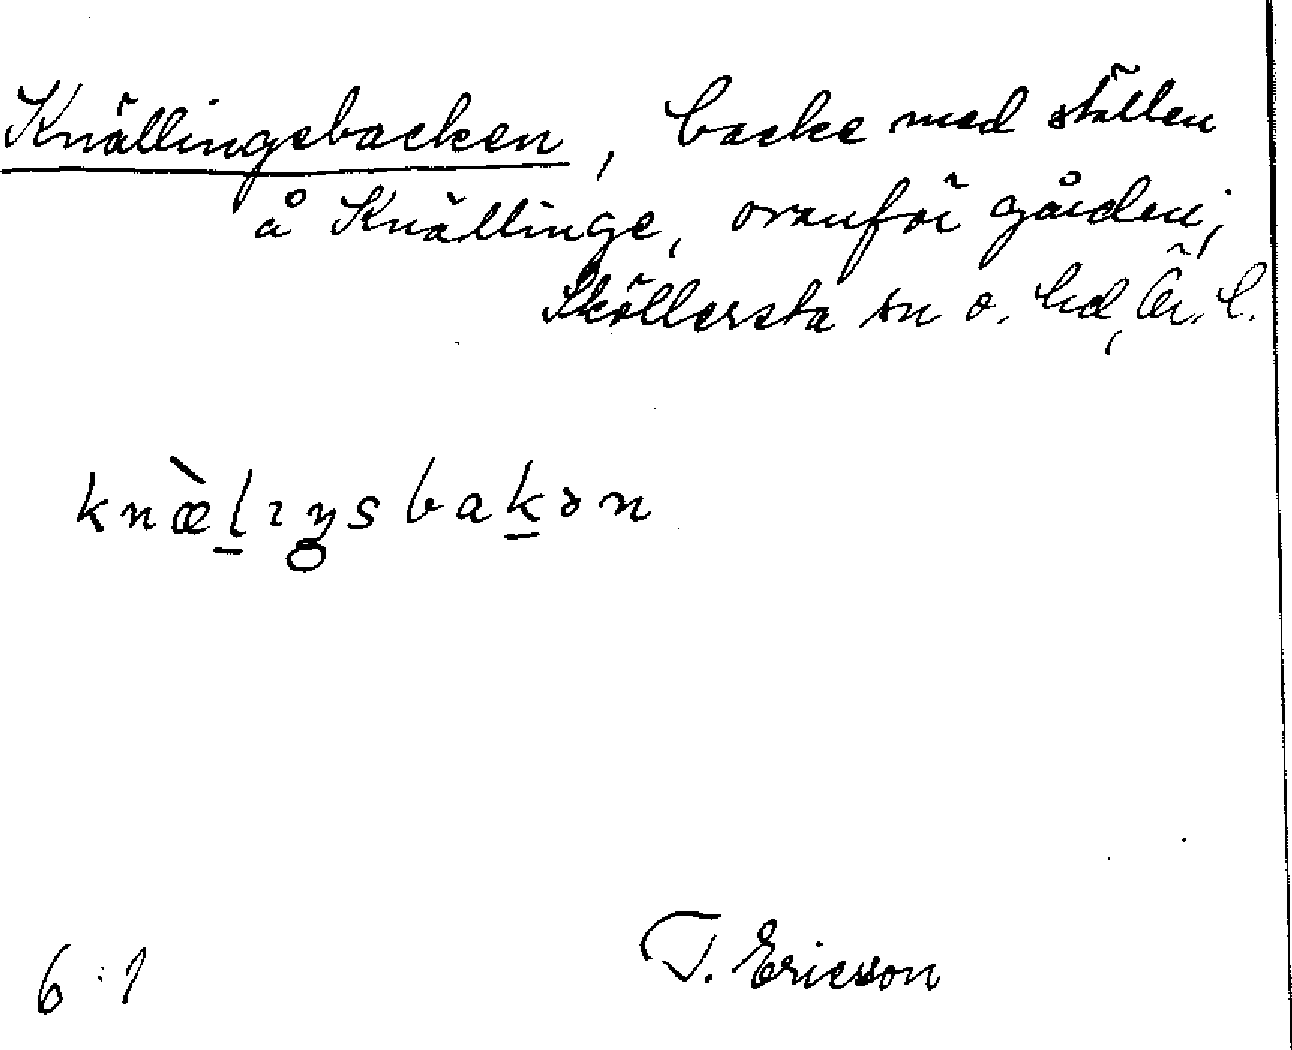 Knällingsbacken, backe med ställen
å Knällinge, ovanför gården;
Sköllersta sn o. hd, Ör. l.
knæ̀l̲ıŋsbak̲ən
6:1
T. Ericsson